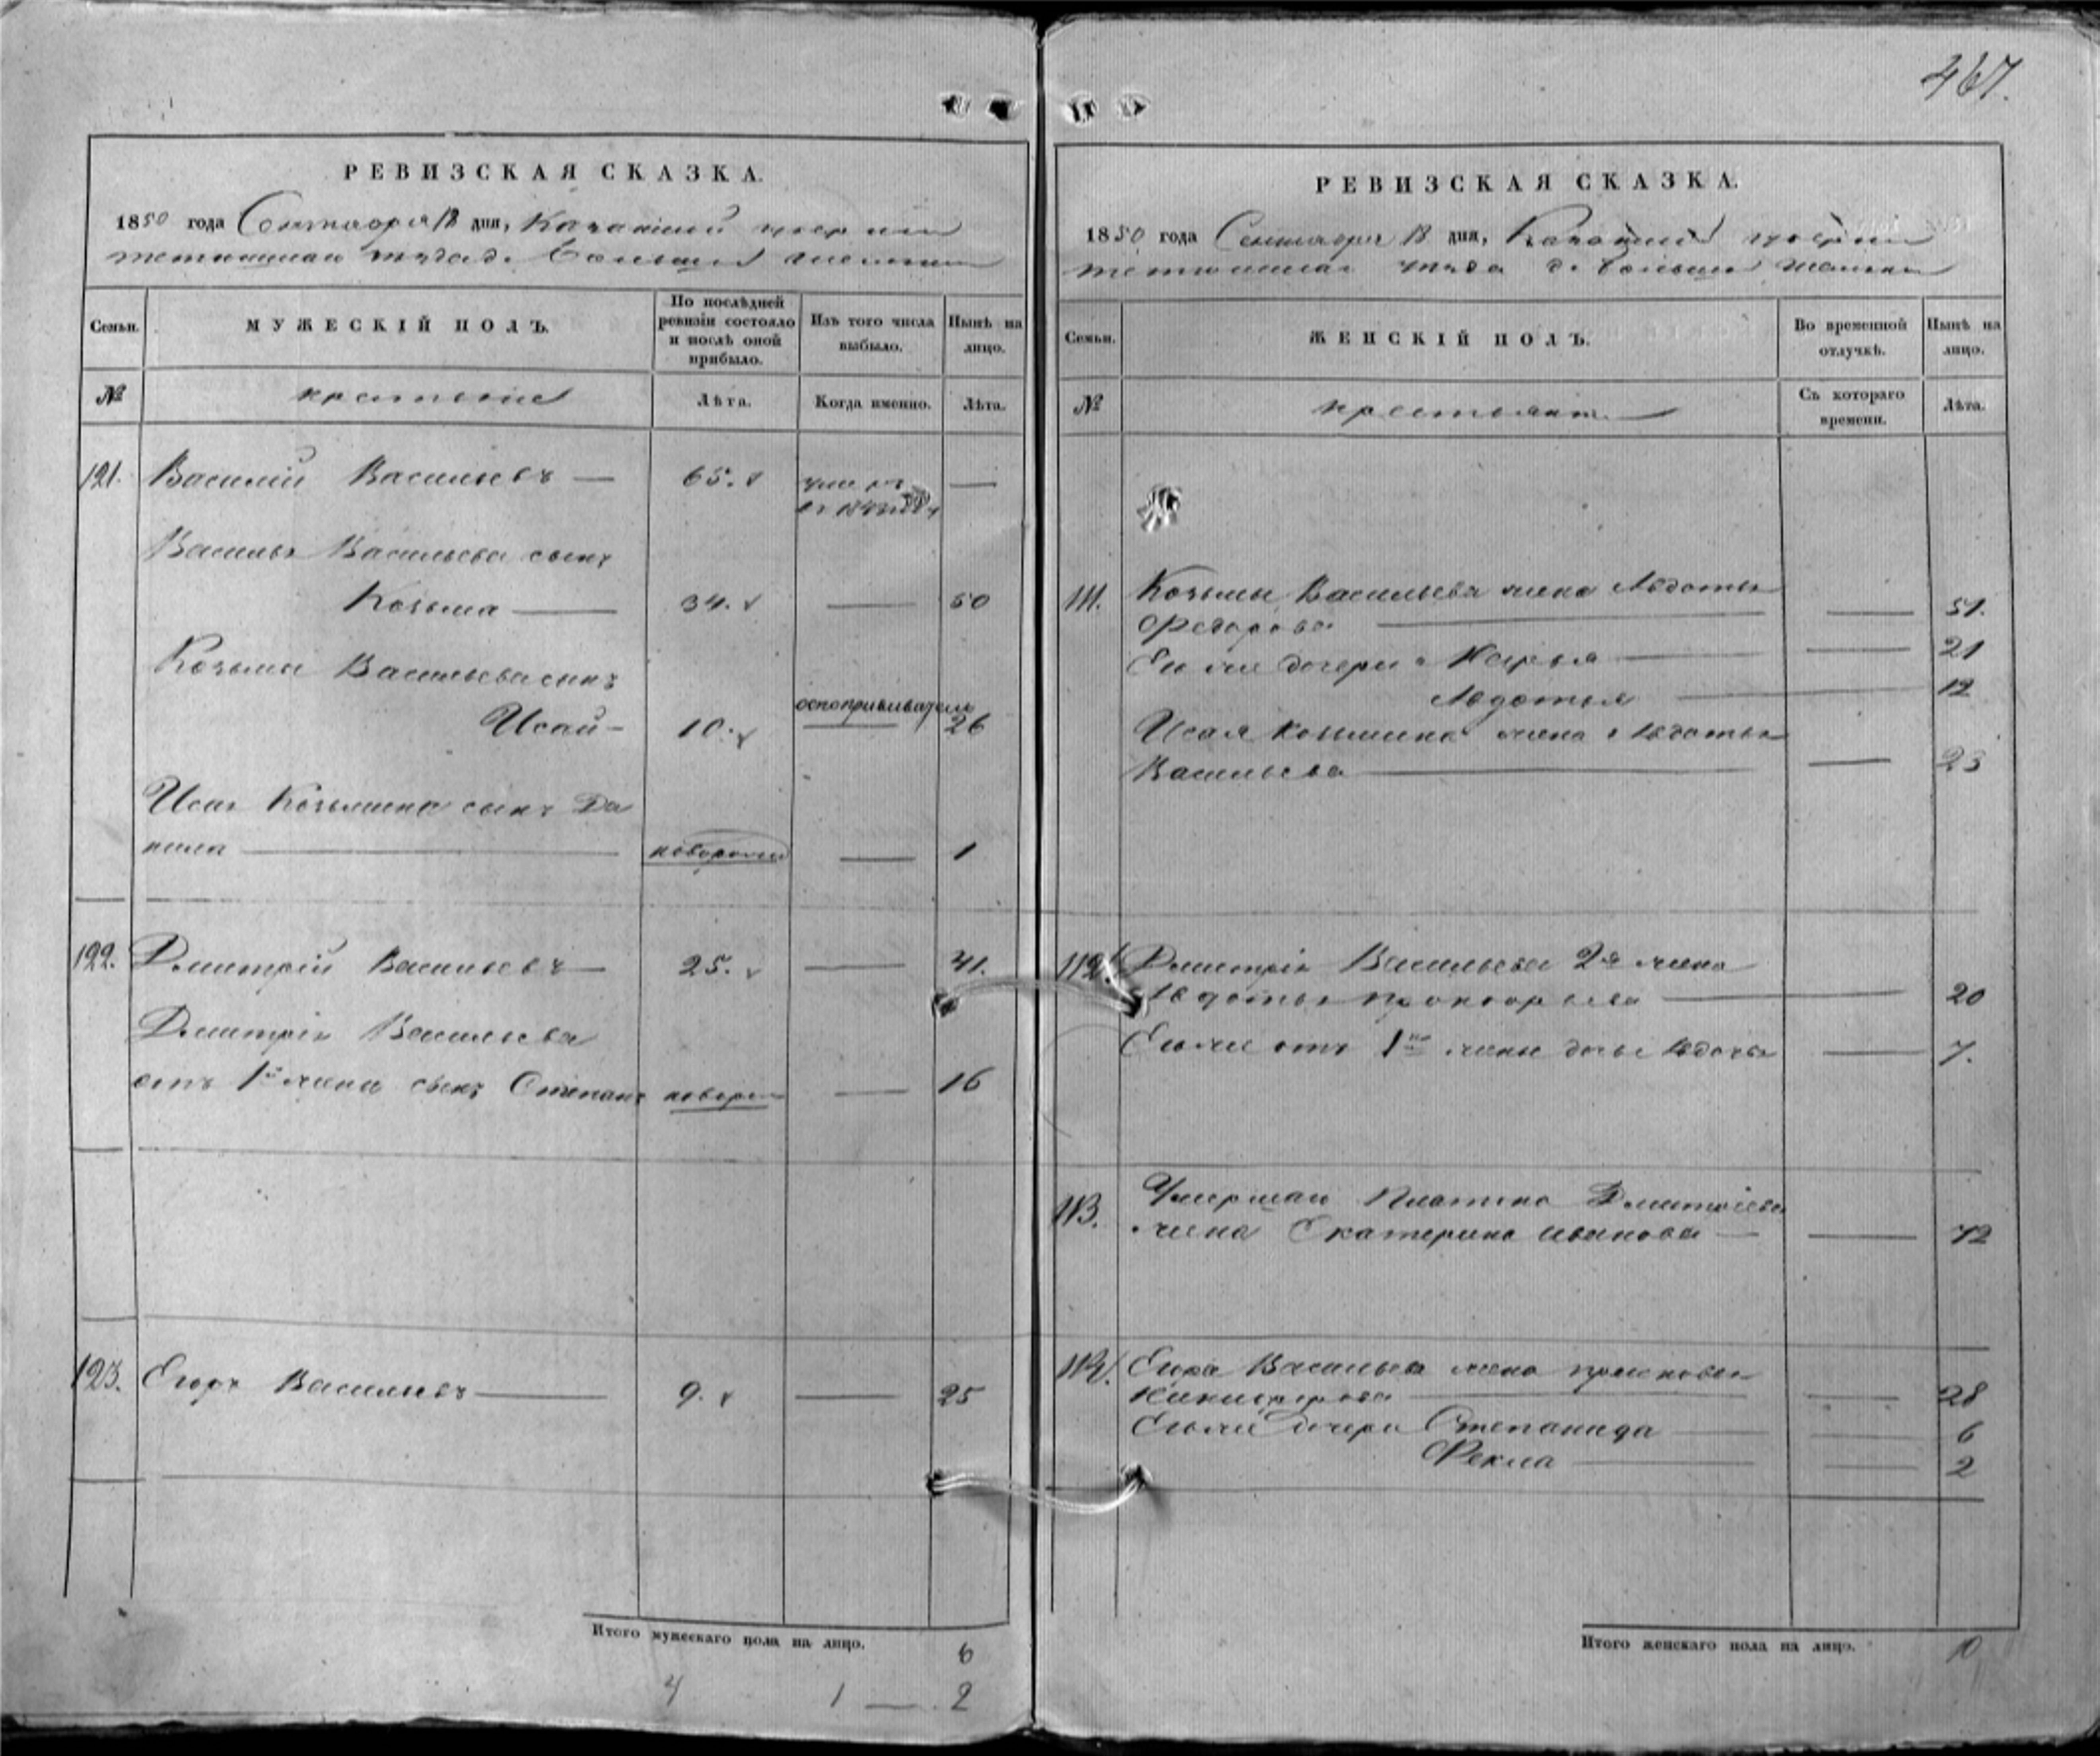 467.
РЕВИЗСКАЯ СКАЗКА.
1850 года Сентября 13 дня, Казанской губернии
Тетюшскаго уезда д. Большой
Семьи. МУЖЕСКІЙ ПОЛЪ. По послѣдней ревизіи состояло и послѣ оной прибыло. Изъ того числа выбыло. Нынѣ на лицо.
№ крестьяне Лѣта. Когда именно. Лѣта.
121. Василій Васильевъ — 65. —
Василья Васильева сынъ
Козьма — 34. — 50
Козьмы Васильева сынъ
оспопрививатель
Исай — 10. — 26
Исая Козьмина сынъ Да
нила — новорожд — 1
122. Дмитрій Васильевъ — 25. — 41.
Дмитрія Васильева
отъ 1й жены сынъ Степанъ новорож — 16
123. Егоръ Васильевъ — 9. — 25
Итого мужескаго пола на лицо. 6
4 1 — 2
РЕВИЗСКАЯ СКАЗКА.
1850 года Сентября 13 дня, Казанской губернии
Тетюшскаго уезда д. Большой
Семьи. ЖЕНСКІЙ ПОЛЪ. Во временной отлучкѣ. Нынѣ на лицо.
№ крестьянъ — Съ котораго времени. Лѣта.
111. Козьмы Васильева жена Авдотья
Федорова — — 51.
Ею же дочери Марья — — 21
Авдотья — 12
Исая Козьмина жена Авдотья
Васильева — — 23
112. Дмитрія Васильева 2я жена
Авдотья Прокофьева — 20
Его же отъ 1й жены дочь Авдотья — 7.
113. Умершаго Платона Дмитріева
жена Екатерина Иванова — — 72
114. Егора Васильева жена Прасковья
Никифорова — — 28
Его же дочери Степанида — — 6
Фекла — — 2
Итого женскаго пола на лицо. 10